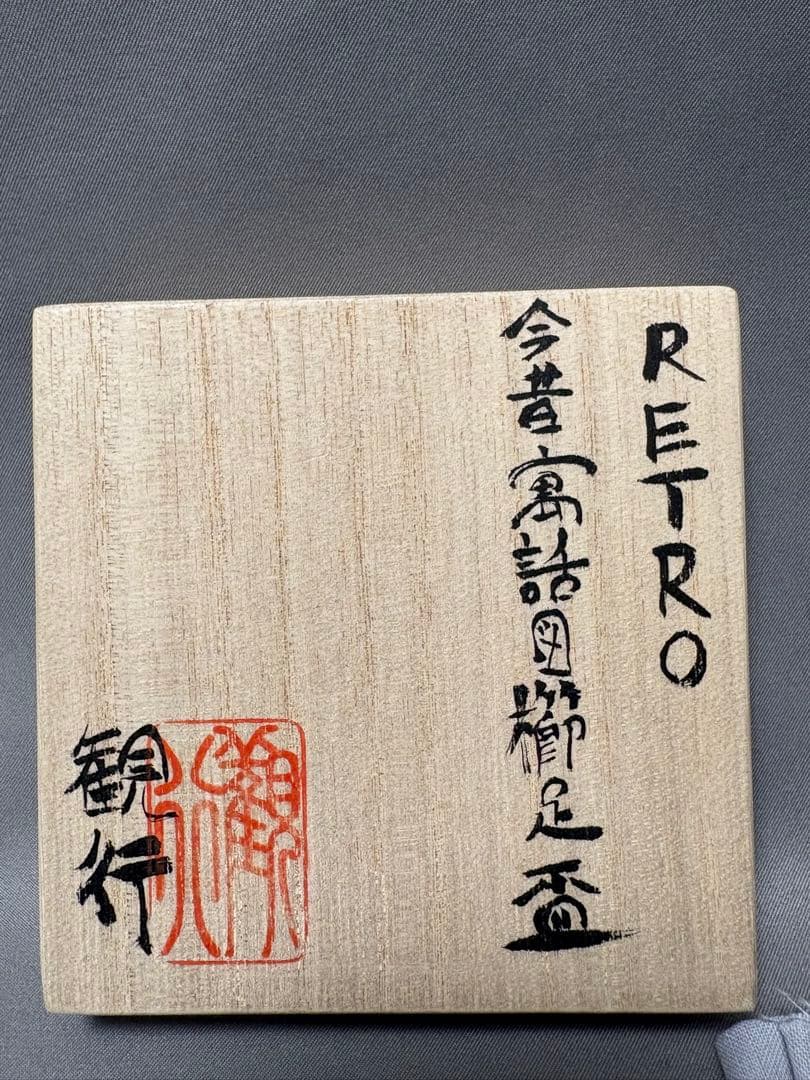 RETRO
今昔寓話図櫛足盃
観行
觀行